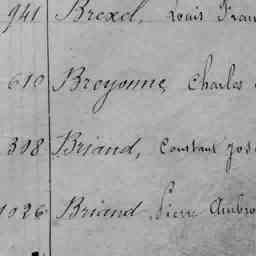 941 Brexel, Louis Fran
610 Broyonne, Charles
398 Briand, Constant Jos
1026 Briand Pierre Ambro